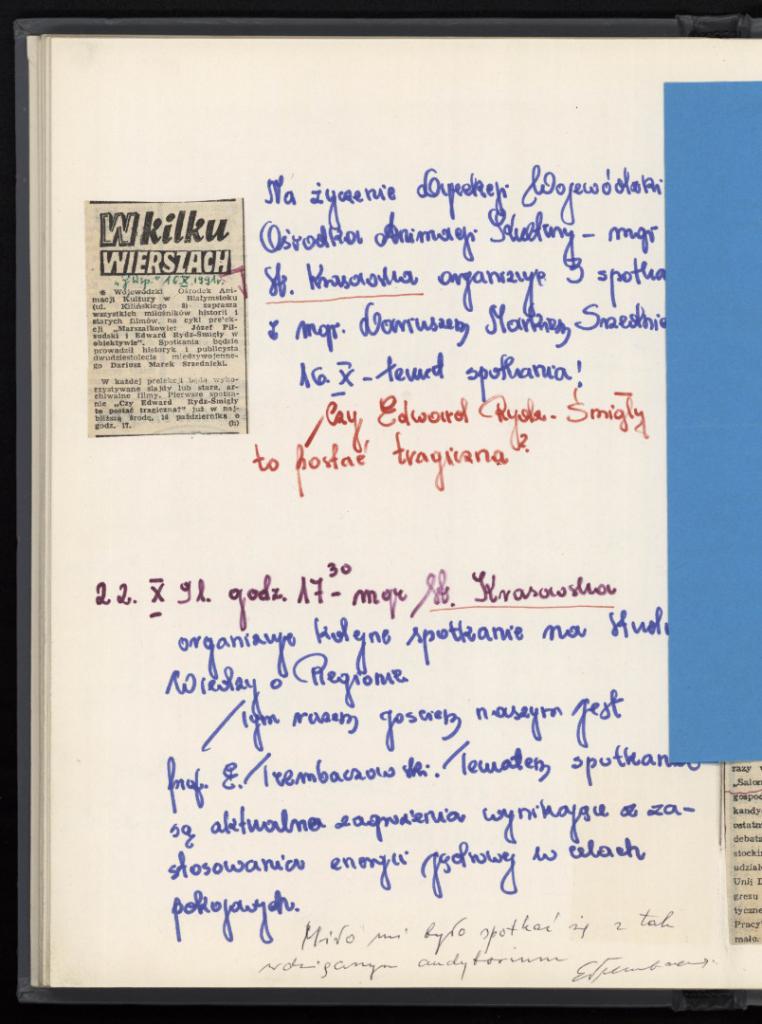 W kilku
WIERSZACH
16 X 1991r.
Wojewódzki Ośrodek Ani-
macji Kultury w Białymstoku
(ul. Kilińskiego 8) zaprasza
wszystkich miłośników historii i
starych filmów, na cykl prelek-
cji „Marszałkowie: Józef Pił-
sudski i Edward Rydz-Śmigły w
obiektywie”. Spotkania będzie
prowadził historyk i publicysta
dwudziestolecia międzywojenne-
go Dariusz Marek Srzednicki.
W każdej prelekcji będą wyko-
rzystywane slajdy lub stare, ar-
chiwalne filmy. Pierwsze spotka-
nie „Czy Edward Rydz-Śmigły
to postać tragiczna?” już w naj-
bliższą środę, 16 października o
godz. 17. (h)
Na życzenie Dyrekcji Wojewódzki
Ośrodka Animacji Kultury – mgr
Krasowska organizuje 3 spotka
z mgr. Dariuszem Markiem Srzednic
16. X – temat spotkania!
Czy Edward Rydz-Śmigły
to postać tragiczna?
22. X 91. godz. 17 30 – mgr Krasowska
organizuje kolejne spotkanie na Stud
Wiedzy o Regionie
Tym razem gościem naszym jest
prof. E. Trembaczowski. Tematem spotkania
są aktualne zagrożenia wynikające z za-
stosowania energii jądrowej w celach
pokojowych.
Miło mi było spotkać się z tak
audytorium
razy
„Salon
gospod
kandy
ostatni
debata
stocki
udział
Unii D
gresu
tyczne
Pracy
mało.